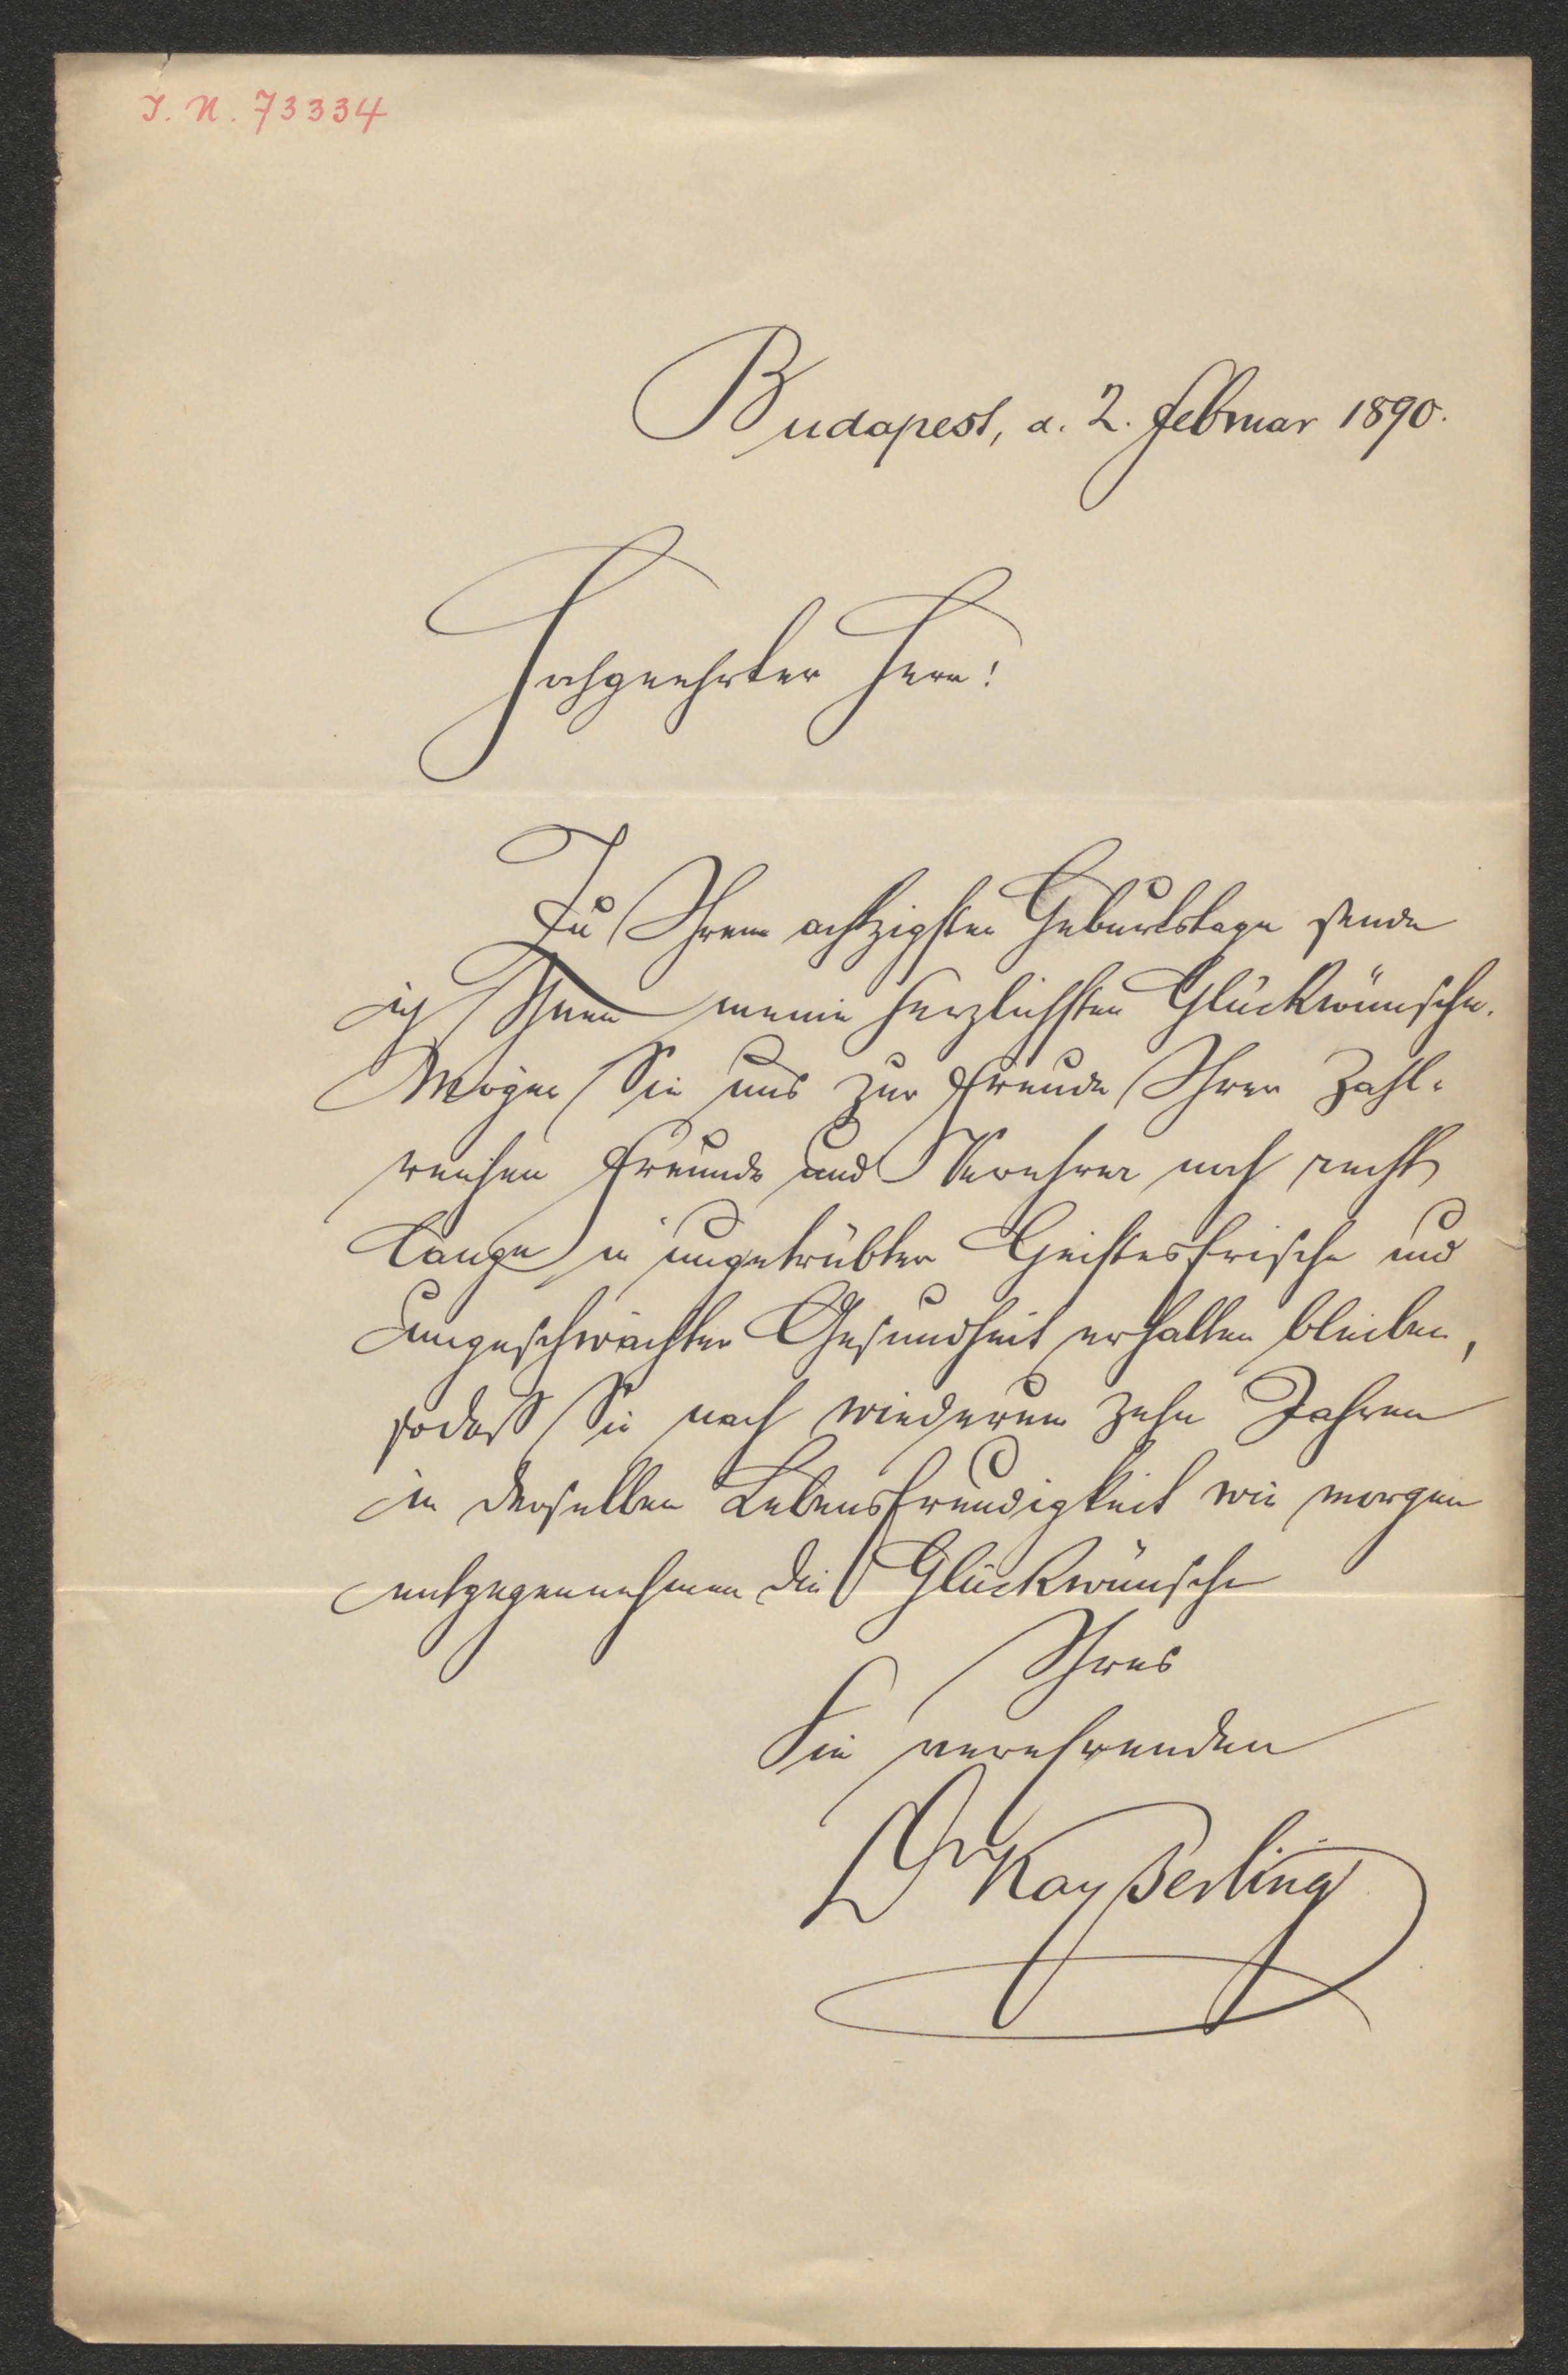 I. N. 73334
Budapest, d. 2. Februar 1890.
Hochgeehrter Herr!
Zu Ihrem achtzigsten Geburtstage sende
ich Ihnen meine herzlichsten Glückwünsche.
Mögen Sie uns zur Freude Ihrer zahl-
reichen Freunde und Verehrer noch recht
lange in ungetrübter Geistesfrische und
ungeschwächter Gesundheit erhalten bleiben,
sodaß Sie nach wiederum zehn Jahren
in derselben Lebensfreudigkeit wie morgen
entgegennehmen die Glückwünsche
Ihres
Sie verehrenden
Dr Kayserling